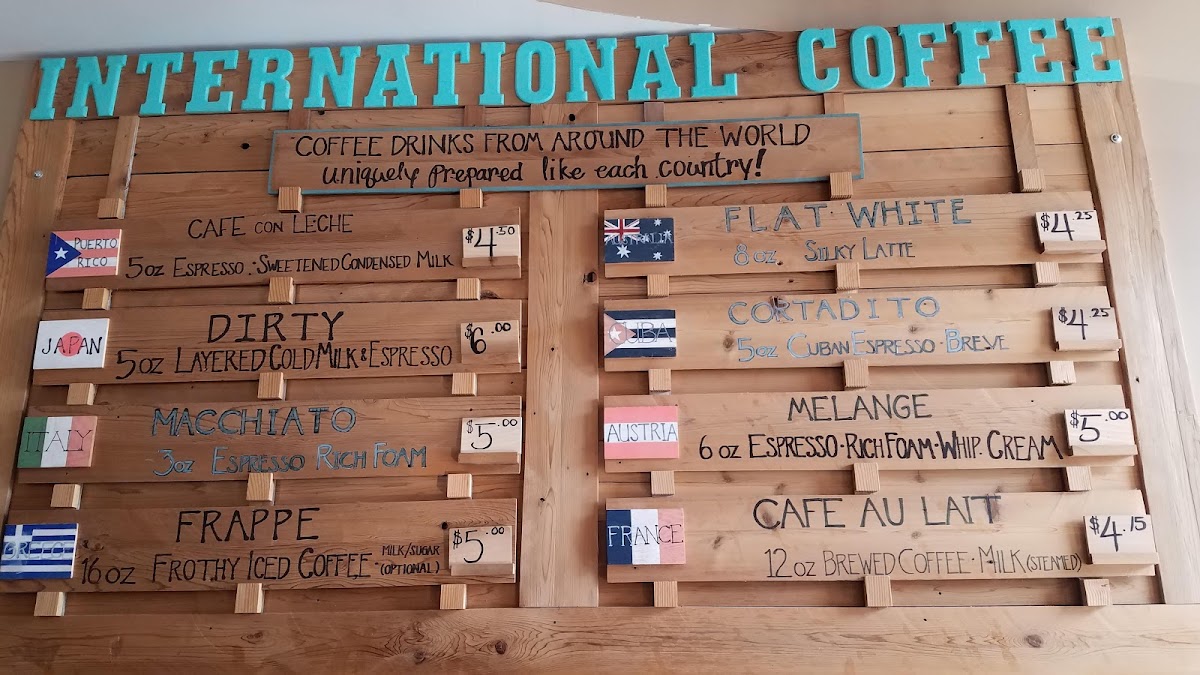 INTERNATIONAL COFFEE
COFFEE DRINKS FROM AROUND THE WORLD
uniquely prepared like each country!
PUERTO RICO
CAFE CON LECHE
5oz ESPRESSO - SWEETENED CONDENSED MILK
$4.50
JAPAN
DIRTY
5oz LAYERED COLD MILK & ESPRESSO
$6.00
ITALY
MACCHIATO
3oz ESPRESSO RICH FOAM
$5.00
GREECE
FRAPPE
16oz FROTHY ICED COFFEE - MILK/SUGAR (OPTIONAL)
$5.00
AUSTRALIA
FLAT WHITE
8oz SILKY LATTE
$4.25
CUBA
CORTADITO
5oz CUBAN ESPRESSO - BREVE
$4.25
AUSTRIA
MELANGE
6oz ESPRESSO - RICH FOAM - WHIP. CREAM
$5.00
FRANCE
CAFE AU LAIT
12oz BREWED COFFEE - MILK (STEAMED)
$4.15